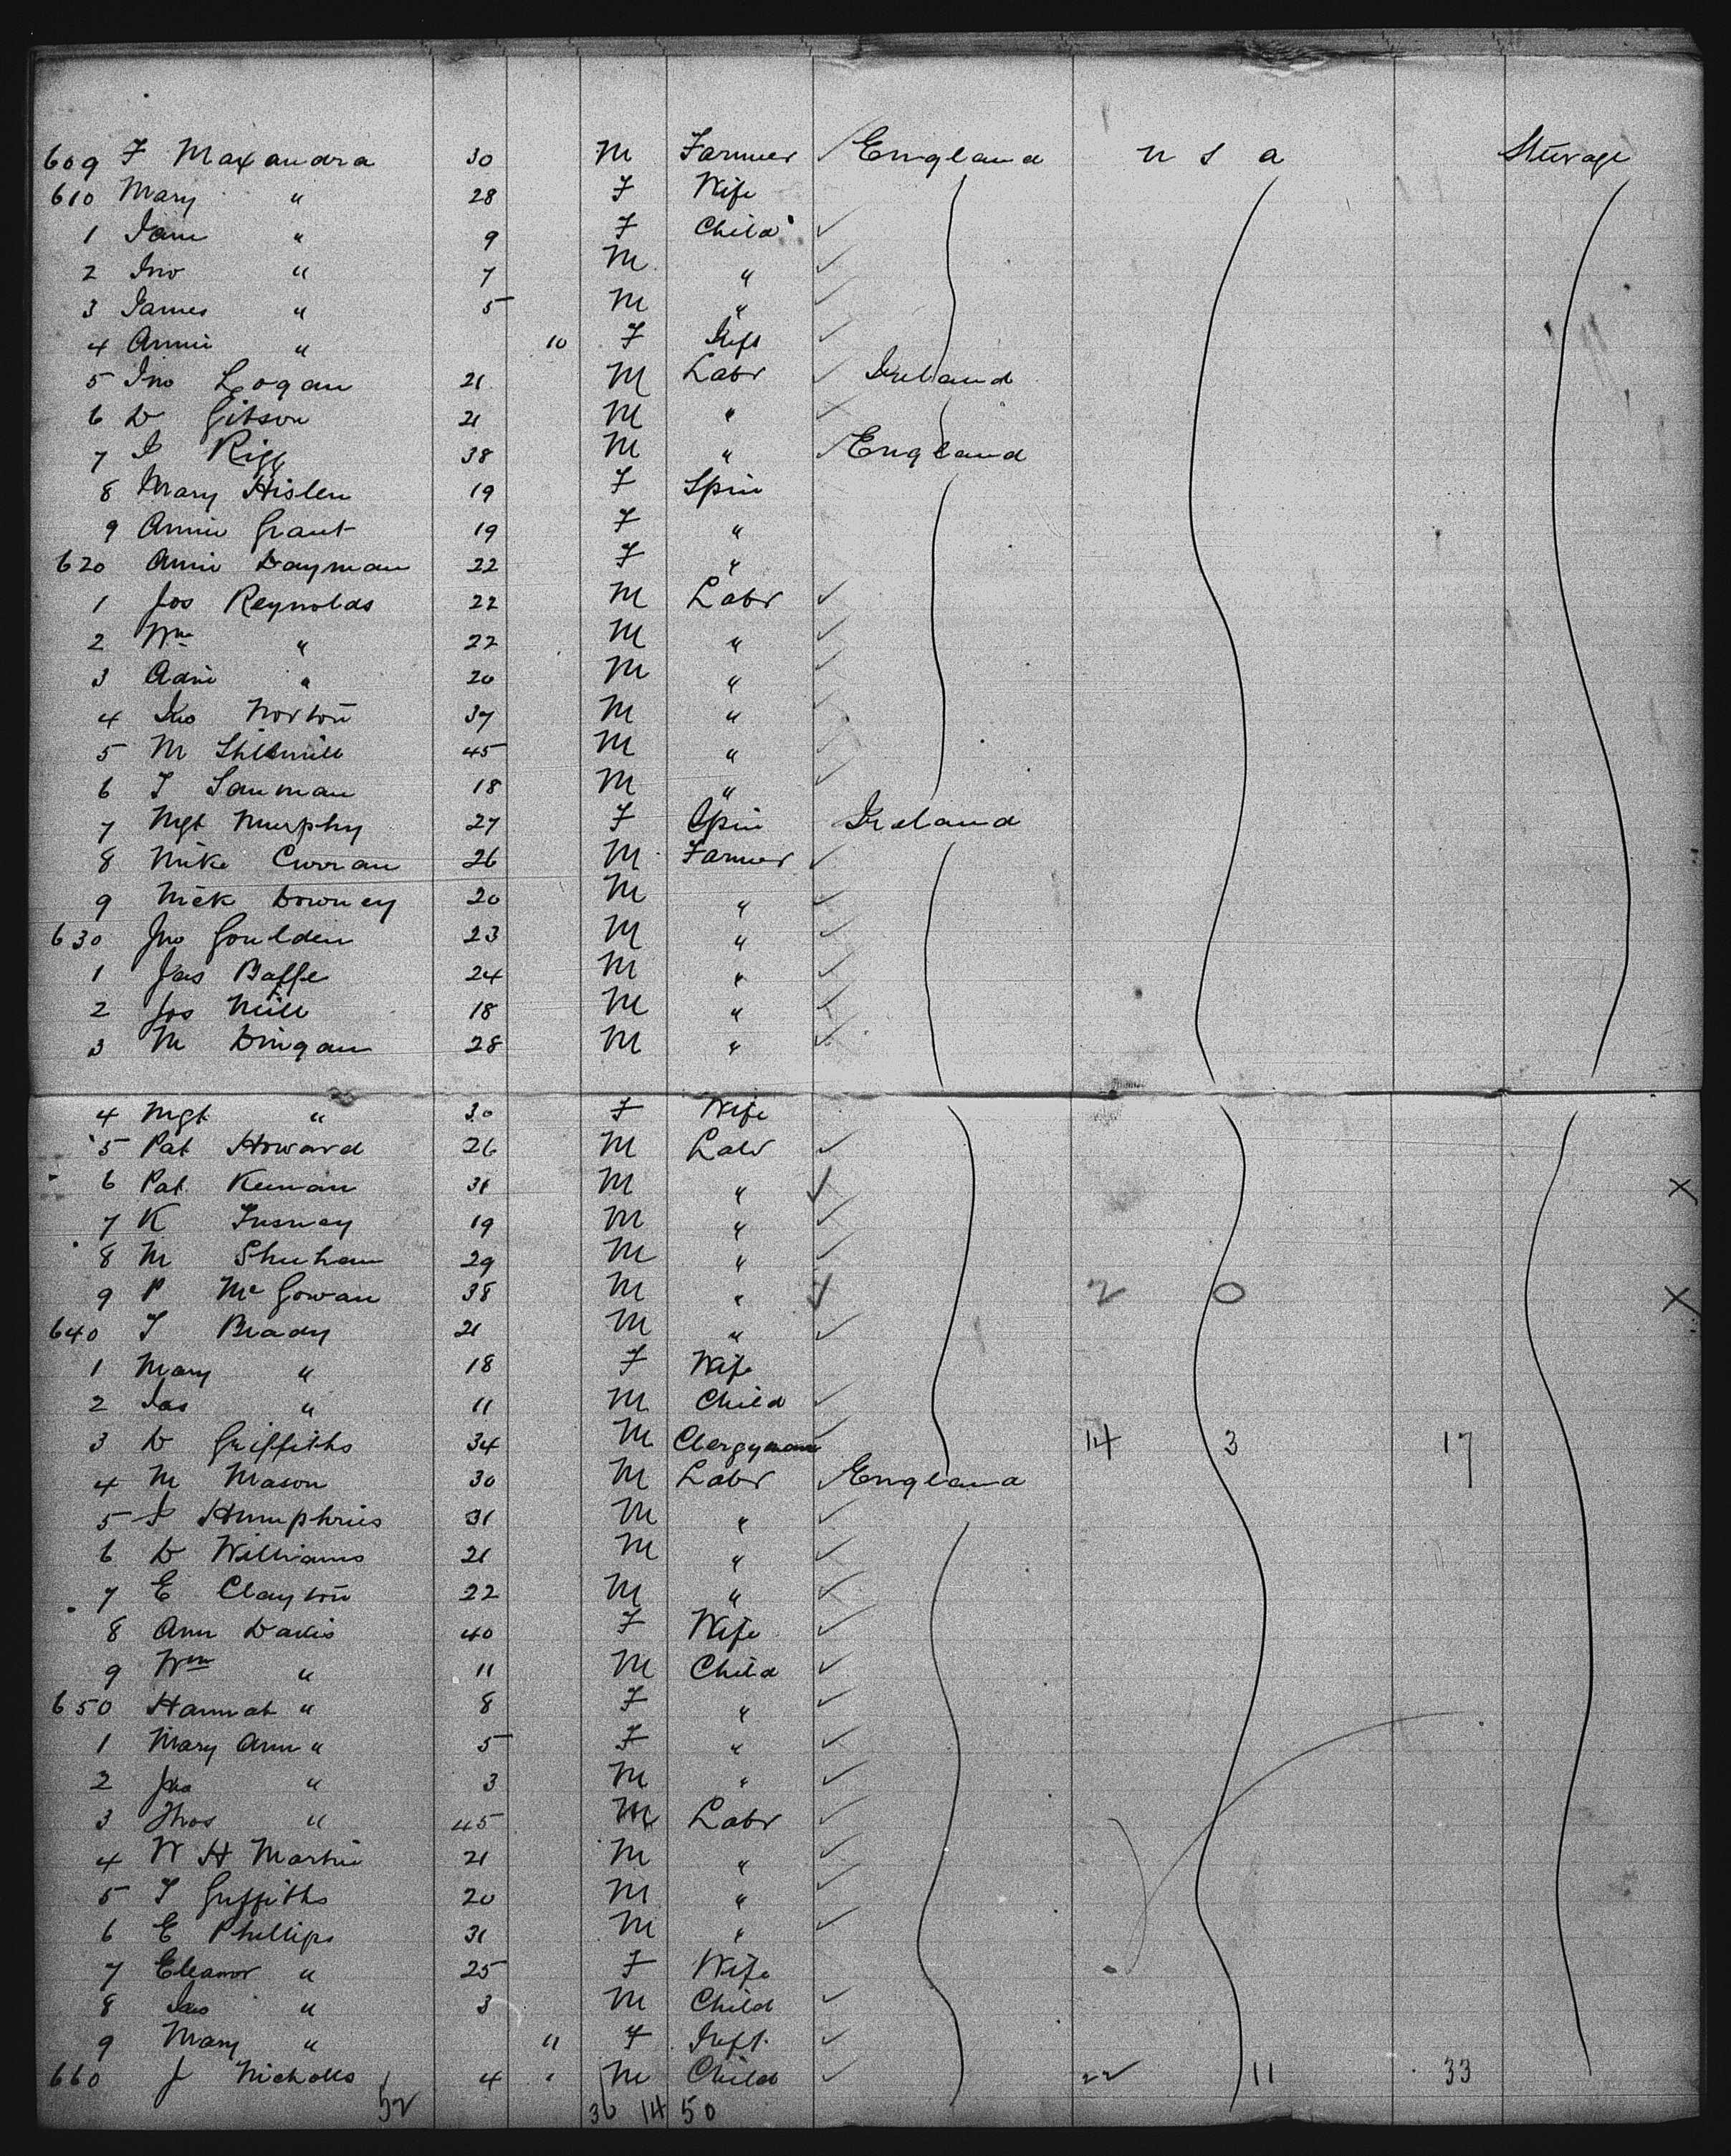 609 F Maxandra 30 M Farmer ✓ England U S a Steerage
610 Mary " 28 F Wife
1 Jane " 9 F Child ✓
2 Jno " 7 M " ✓
3 James " 5 M " ✓
4 Annie " 10 F Inft ✓
5 Jno Logan 21 M Labr ✓ Ireland
6 D Gibson 21 M " ✓
7 J Rigg 38 M " ✓ England
8 Mary Hislen 19 F Spin
9 Annie Grant 19 F "
620 Annie Dayman 22 F "
1 Jos Reynolds 22 M Labr ✓
2 Wm " 22 M " ✓
3 " 20 M " ✓
4 Jno Norton 37 M " ✓
5 M 45 M " ✓
6 18 M " ✓
7 Mgt Murphy 27 F Spin Ireland
8 Mike Curran 26 M Farmer ✓
9 Mck Downey 20 M " ✓
630 Jno Goulden 23 M " ✓
1 Jas 24 M " ✓
2 Jos 18 M " ✓
3 M 28 M " ✓
4 Mgt " 30 F Wife
5 Pat Howard 26 M Labr ✓
6 Pat Keenan 31 M " ✓ X
7 K 19 M " ✓
8 M Sheehan 29 M " ✓
9 P McGowan 38 M " ✓ 2 0 X
640 T Brady 21 M " ✓
1 Mary " 18 F Wife
2 Jas " 11 M Child ✓
3 D Griffiths 34 M Clergyman ✓ 14 3 17
4 M Mason 30 M Labr ✓ England
5 J Humphries 31 M " ✓
6 D Williams 21 M " ✓
7 E Clayton 22 M " ✓
8 Ann Davis 40 F Wife ✓
9 Wm " 11 M Child ✓
650 Hannah " 8 F " ✓
1 Mary Ann " 5 F " ✓
2 Jno " 3 M " ✓
3 Thos " 45 M Labr ✓
4 W H Martin 21 M " ✓
5 T Griffiths 20 M " ✓
6 E Phillips 31 M " ✓
7 Eleanor " 25 F Wife
8 Jas " 3 M Child ✓
9 Mary " 11 F Inft. ✓
660 J Nicholls 4 M Child ✓ 22 11 33
52 36 14 50